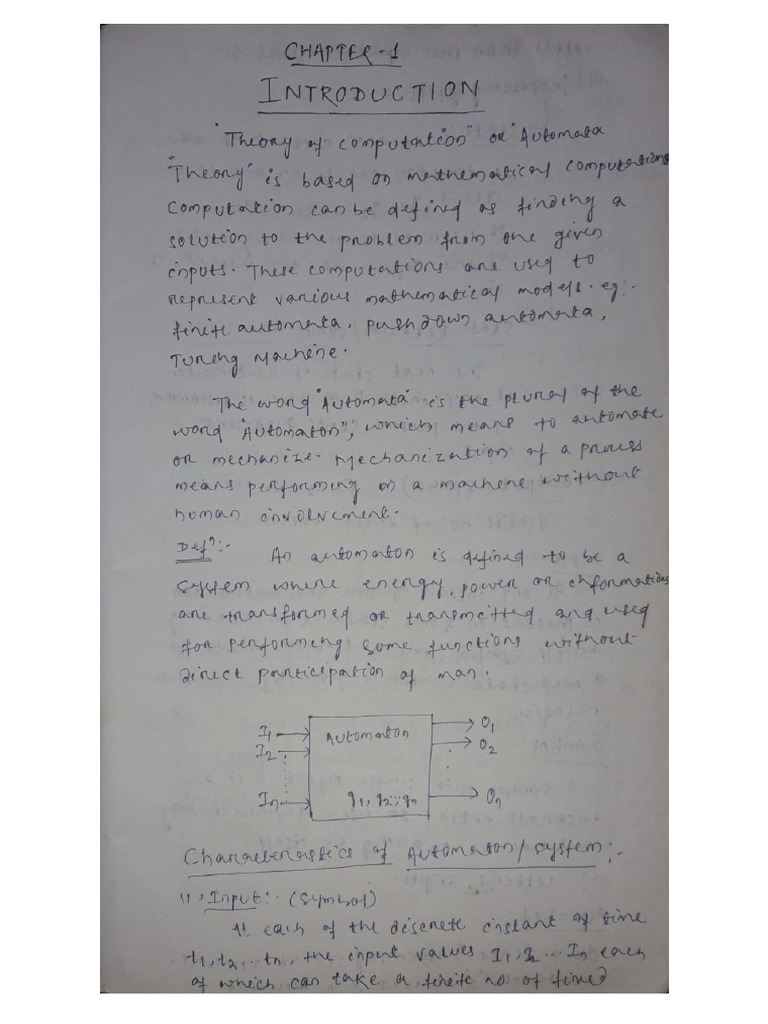 CHAPTER-1
INTRODUCTION
"Theory of computation" or "Automata
"Theory" is based on mathematical computations
computation can be defined as finding a
solution to the problem from one given
inputs. These computations are used to
represent various mathematical models. eg:-
finite automata, pushdown automata,
Turing Machine.
The word "Automata" is the plural of the
word "Automaton", which means to automate
or mechanize. Mechanization of a process
means performing on a machine without
human involvement.
Defn:- An automaton is defined to be a
system where energy, power or informations
are transformed or transmitted and used
for performing some functions without
direct participation of man.
I1 Automaton O1
I2 O2
In q1, q2...qn On
Characteristics of Automaton/System:-
1, Input:- (Symbol)
At each of the discrete instant of time
t1, t2 .. tn, the input values I1, I2 ... In each
of which can take a finite no. of fixed